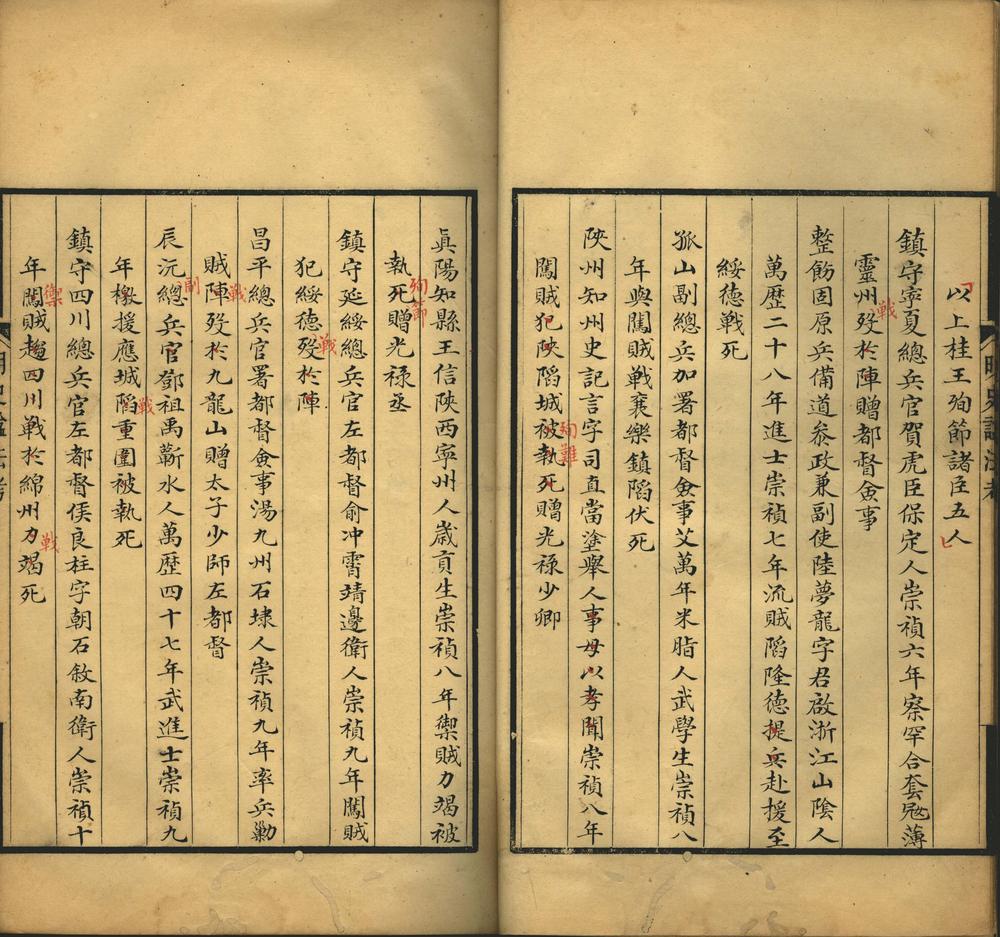 以上桂王殉節諸臣五人
鎮守寧夏總兵官賀虎臣保定人崇禎六年察罕合套冦薄
靈州歿於陣贈都督僉事
戰
整飭固原兵備道叅政兼副使陸夢龍字君啟浙江山陰人
萬歷二十八年進士崇禎七年流賊䧟隆德提兵赴援至
綏德戰死
孤山副總兵加署都督僉事艾萬年米脂人武學生崇禎八
年與闖賊戰襄樂鎮䧟伏死
陜州知州史記言字司直當塗舉人事母以孝聞崇禎八年
闖賊犯陜䧟城被執死贈光祿少卿
殉難
眞陽知縣王信陜西寧州人歲貢生崇禎八年禦賊力竭被
執死贈光祿丞
殉節
鎮守延綏總兵官左都督俞冲霄靖邊衛人崇禎九年闖賊
犯綏德歿於陣
戰
昌平總兵官署都督僉事湯九州石埭人崇禎九年率兵勦
賊陣歿於九龍山贈太子少師左都督
戰
辰沅總兵官鄧祖禹蘄水人萬歷四十七年武進士崇禎九
副
年檄援應城䧟重圍被執死
戰
鎮守四川總兵官左都督侯良柱字朝石敘南衛人崇禎十
年闖賊趨四川戰於綿州力竭死
禦
戰